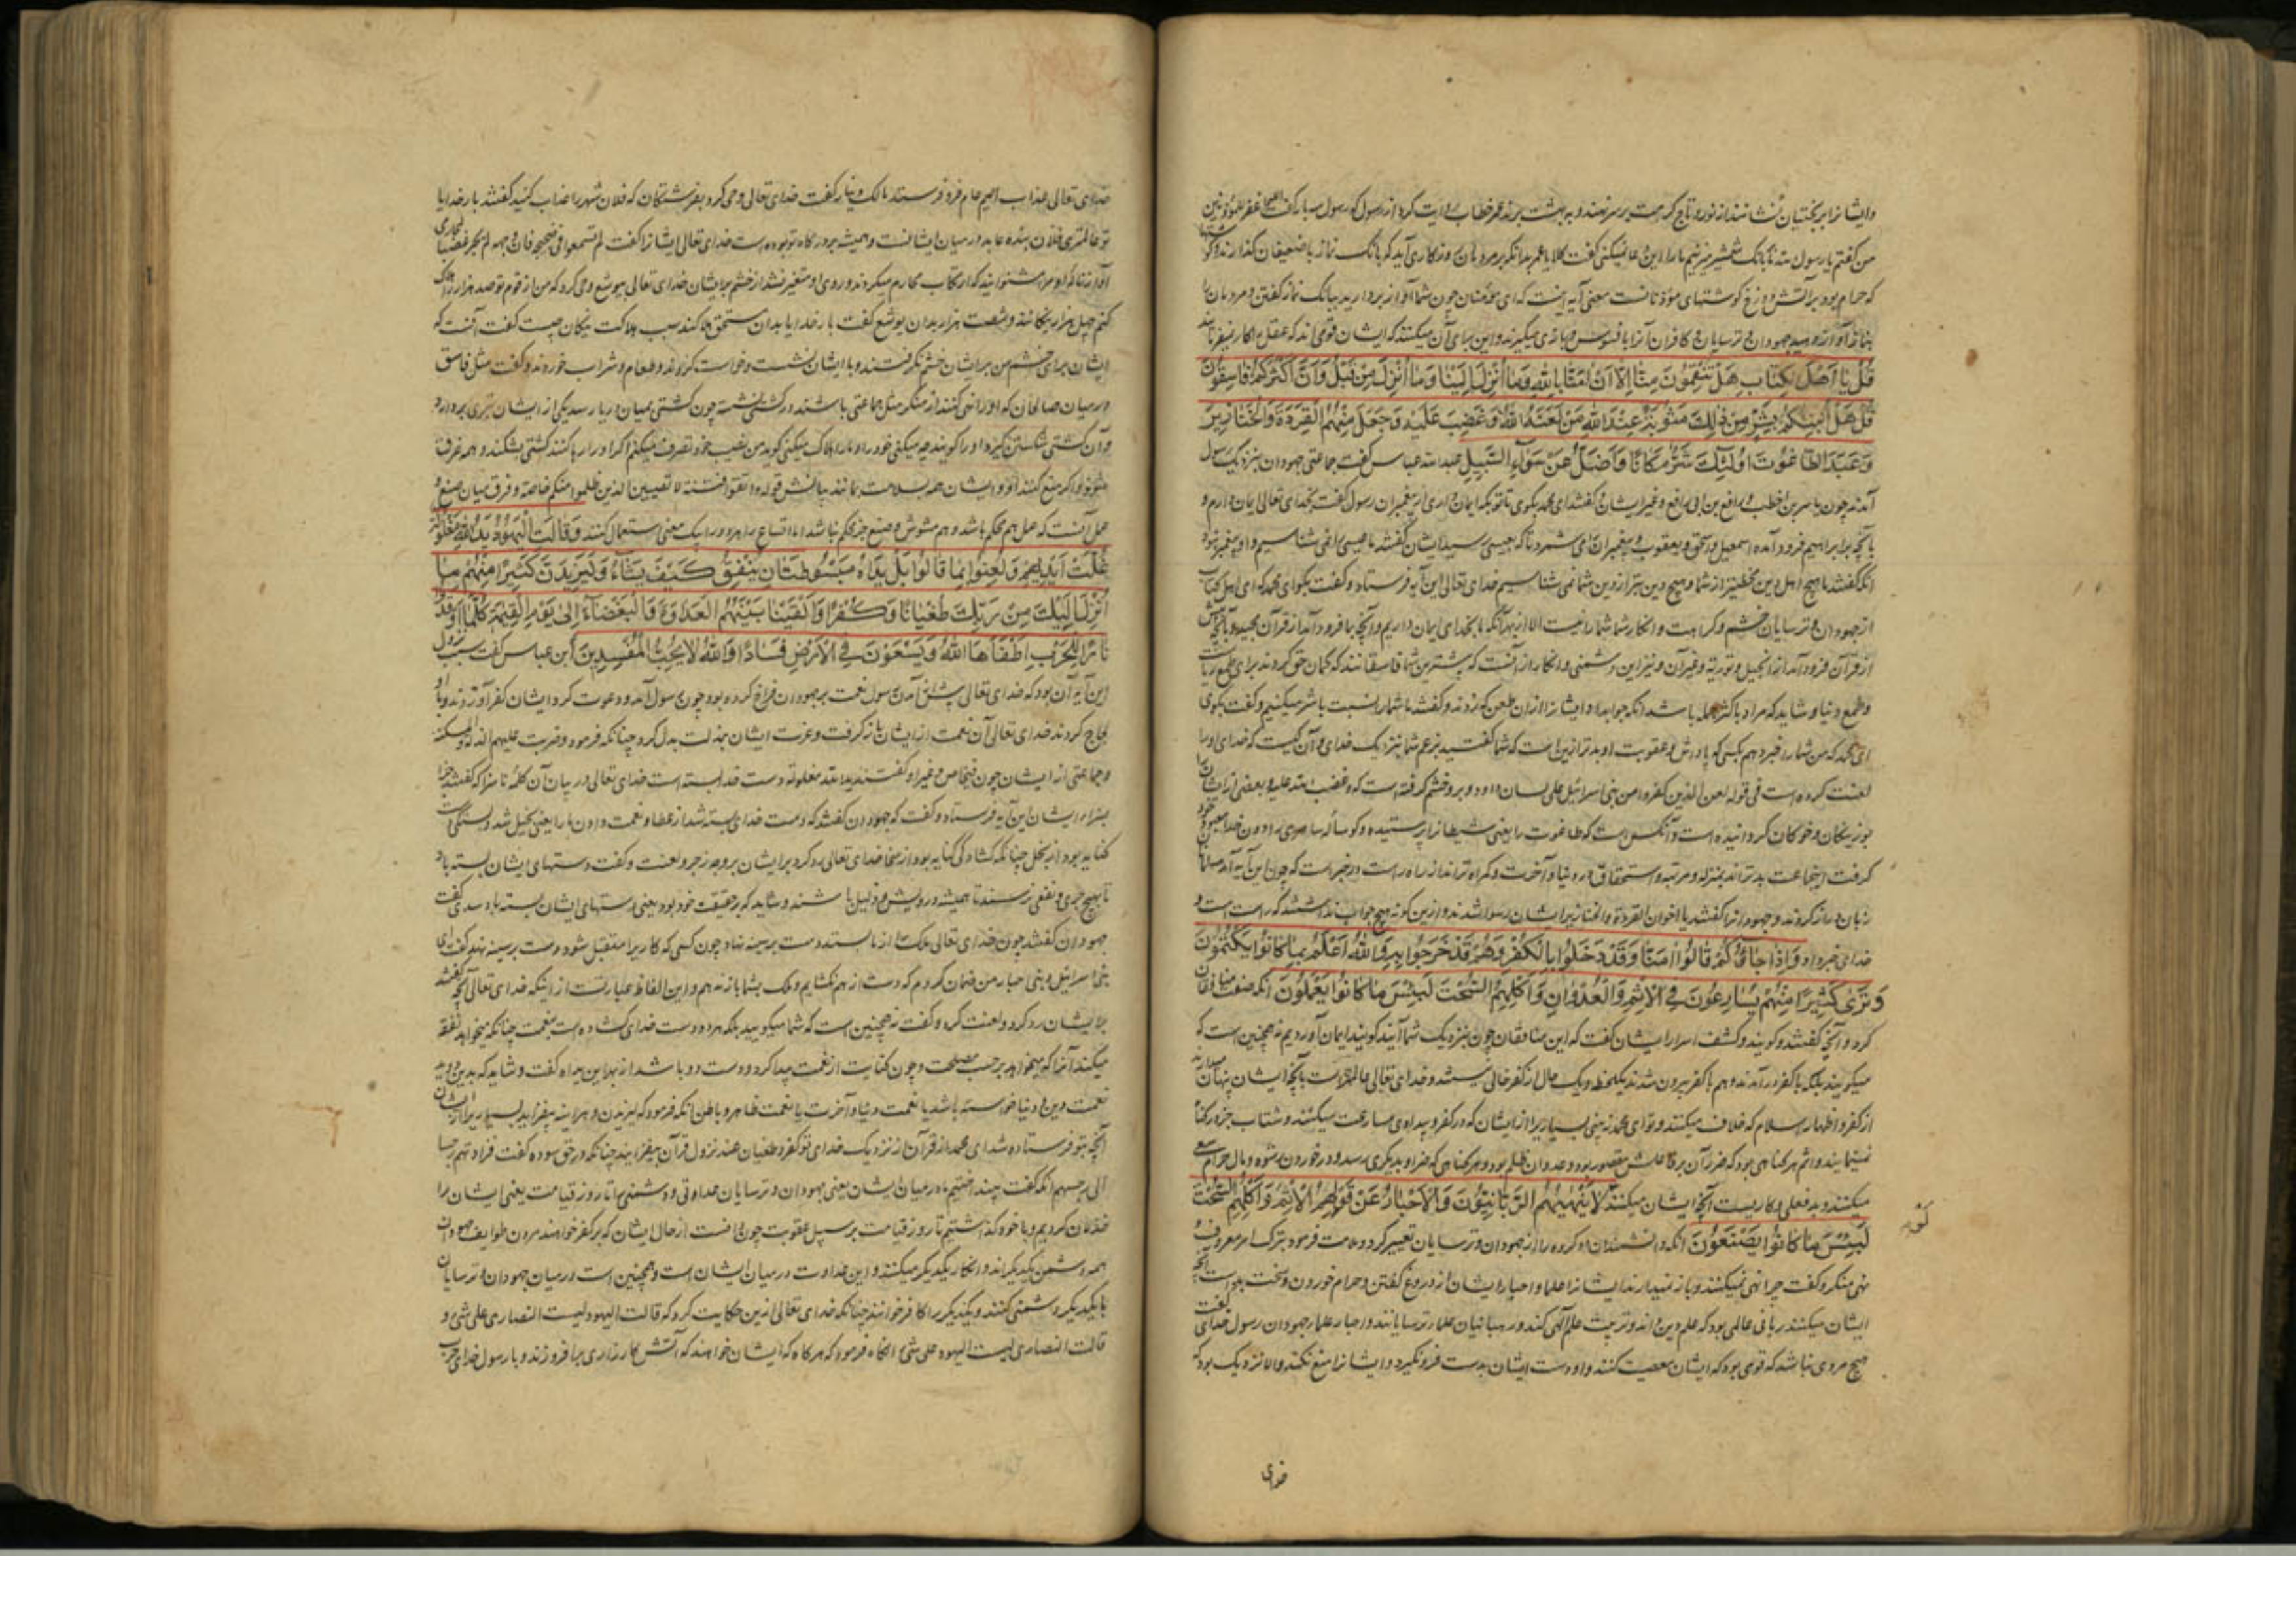 وایشانرا بر بختیان نشانند از نور و تاج کرامت بر سر نهند و به بهشت برند عمر خطاب روایت کرد از رسول که رسول سه بار گفت اللهم اغفر للمؤذنین
من گفتم یا رسول الله تا بانگ شمشیر نزنیم ما را این دعا نمیکنی گفت کلا یا عمر بدانکه بر مردمان روزگاری آید که بانگ نماز با ضعیفان گذارند و گوشتها
که حرام بود بر آتش دوزخ گوشتهای مؤذنانست معنی آیه اینست که ای مؤمنان چون شما آواز بردارید ببانگ نماز گفتن و مردمان را
بنماز آواز دهید جهودان و ترسایان و کافران آنرا بافسوس و بازی میگیرند و این برای آن میکنند که ایشان قومی اند که عقل را کار نمیفرمایند
قُلْ یَا اَهْلَ الْکِتَابِ هَلْ تَنْقِمُونَ مِنَّا اِلَّا اَنْ اٰمَنَّا بِاللهِ وَمَا اُنْزِلَ اِلَیْنَا وَمَا اُنْزِلَ مِنْ قَبْلُ وَاَنَّ اَکْثَرَکُمْ فَاسِقُونَ
قُلْ هَلْ اُنَبِّئُکُمْ بِشَرٍّ مِنْ ذٰلِکَ مَثُوبَةً عِنْدَ اللهِ مَنْ لَعَنَهُ اللهُ وَغَضِبَ عَلَیْهِ وَجَعَلَ مِنْهُمُ الْقِرَدَةَ وَالْخَنَازِیرَ
وَعَبَدَ الطَّاغُوتَ اُولٰئِکَ شَرٌّ مَکَانًا وَاَضَلُّ عَنْ سَوَآءِ السَّبِیلِ عبدالله عباس گفت جماعتی جهودان بنزدیک رسول
آمدند چون یاسر بن اخطب و رافع بن ابی رافع و غیر ایشان و گفتند ای محمد بگوی تا تو بکه ایمان داری از پیغمبران رسول گفت بخدای تعالی ایمان دارم و
بآنچه بر ابراهیم فرود آمد و اسمعیل و اسحق و یعقوب و پیغمبران را می شمرد تا که بعیسی رسید ایشان گفتند ما عیسی را نمی شناسیم و او پیغمبر نبود
آنکه گفتند ما هیچ اهل دین مخطی تر از شما و هیچ دین بتر از دین شما نمی شناسیم خدای تعالی این آیه فرستاد و گفت بگو ای محمد که ای اهل کتاب
از جهودان و ترسایان خشم و کراهت و انکار شما شما را نیست الا از بهر آنکه ما بخدای ایمان داریم و آنچه بما فرود آمد از قرآن مجید و بآنچه پیش
از قرآن فرود آمد از انجیل و توریة و غیر آن و نیز این دشمنی و انکار از آنست که بیشترین شما فاسقانند که کتمان حق کردند برای طمع ریاست
و طمع دنیا و شاید که مراد باکثر جمله باشد آنکه جواب داد ایشانرا از آن طعن که زدند و گفتند ما شما را نسبت با شر میکنیم و گفت بگوی
ای محمد که من شما را خبر دهم بکسی که پاداش و عقوبت او بدتر ازین است که شما گفتید بزعم شما بنزدیک خدای و آن کیست که خدای او را
لعنت کرده است فی قوله لعن الذین کفروا من بنی اسرائیل علی لسان داود و بر و خشم گرفته است که و غضب الله علیه و بعضی از ایشان را
بوزینگان و خوکان گردانیده است و آنکس است که طاغوت را یعنی شیطان را پرستیده و گوساله سامری را دون خدا معبود خود
گرفت اینجماعت بدتراند بمنزله و مرتبه و استحقاق در دنیا و آخرت و گمراه تر اند از راه راست در خبر است که چون این آیه آمد مسلمانان
زبان دراز کردند و جهودانرا گفتند یا اخوان القردة و الخنازیر ایشان رسوا شدند و ازین گونه هیچ جواب نداشتند که راست است و
خدای خبر داد وَاِذَا جَآؤُکُمْ قَالُوا اٰمَنَّا وَقَدْ دَخَلُوا بِالْکُفْرِ وَهُمْ قَدْ خَرَجُوا بِهِ وَاللهُ اَعْلَمُ بِمَا کَانُوا یَکْتُمُونَ
وَتَرٰی کَثِیرًا مِنْهُمْ یُسَارِعُونَ فِی الْاِثْمِ وَالْعُدْوَانِ وَاَکْلِهِمُ السُّحْتَ لَبِئْسَ مَا کَانُوا یَعْمَلُونَ آنکه صفت منافقان
کرد و آنچه گفتند و گویند و کشف اسرار ایشان گفت که این منافقان چون بنزدیک شما آیند گویند ایمان آوردیم نه همچنین است که
میگویند بلکه با کفر در آمدند و هم با کفر بیرون شدند یکلحظه و یک حال از کفر خالی نیستند و خدای تعالی عالمتر است بآنچه ایشان پنهان میدارند
از کفر و اظهار اسلام که خلاف میکنند و تو ای محمد می بینی بسیاری را از ایشان که در کفر و بیدادی مسارعت میکنند و شتاب جز در گناه
نمینمایند و اثم هر گناهی بود که ضرر آن بر فاعلش مقصور بود و عدوان ظلم بود و هر گناهی که ضرر او بدیگری رسد و در خوردن رشوه و مال حرام سعی
میکنند و بد فعلی و کاریست آنچه ایشان میکنند لَوْلَا یَنْهٰیهُمُ الرَّبَّانِیُّونَ وَالْاَحْبَارُ عَنْ قَوْلِهِمُ الْاِثْمَ وَاَکْلِهِمُ السُّحْتَ
لَبِئْسَ مَا کَانُوا یَصْنَعُونَ آنکه دانشمندان او کرده را از جهودان و ترسایان تعییر کرد و ملامت فرمود بترک امر معروف و
نهی منکر و گفت چرا نهی نمیکنند و باز نمیدارند ایشانرا علما و احبار ایشان از دروغ گفتن و حرام خوردن و سخت بد است آنچه
ایشان میکنند ربانی عالمی بود که علم دین داند و تربیت علم آلهی کند و رهبانیان علماء ترسایانند و احبار علماء جهودان رسول خدای گفت
هیچ مردی نباشد که قومی بود که ایشان معصیت کنند و او دست ایشان بدست فرو نگیرد و ایشانرا منع نکند و الا نزدیک بود که
خدای
خدای تعالی عذاب الیم عام فرو فرستد مالک دینار گفت خدای تعالی وحی کرد بفرشتگان که فلان شهر را عذاب کنید گفتند بار خدایا
تو عالمتری فلان بنده عابد در میان ایشانست و همیشه بر درگاه تو بوده است خدای تعالی ایشانرا گفت لم تسمعوا فی ضجیجه فان وجهه لم یحمر غضبا لمحارمی
آواز ناله او مرا مشنوانید که ارتکاب محارم میکردند و روی او متغیر نشد از خشم بر ایشان خدای تعالی بیوشع وحی کرد که من از قوم تو صد هزار هلاک
کنم چهل هزار نیکانند و شصت هزار بدان یوشع گفت بار خدایا بدان مستحق هلاکند سبب هلاکت نیکان چیست گفت آنست که
ایشان برای خشم من بر ایشان خشم نگرفتند و با ایشان نشست و خواست کردند و طعام و شراب خوردند و گفت مثل فاسق
در میان صالحان که او را نهی کنند از منکر مثل جماعتی باشند در کشتی نشسته چون کشتی بمیان دریا رسد یکی از ایشان تبری بردارد
و آن کشتی شکستن گیرد او را گویند چه میکنی خود را و ما را هلاک میکنی گوید من نصیب خود تصرف میکنم اگر او را رها کنند کشتی بشکند و همه غرق
شوند و اگر منع کنند او و ایشان همه بسلامت بمانند بیانش قوله و اتقوا فتنة لا تصیبن الذین ظلموا منکم خاصة و فرق میان صنع و
عمل آنست که عمل هم محکم باشد و هم مشوش و صنع جز محکم نباشد اما اتساع را هر دو را بیک معنی استعمال کنند وَقَالَتِ الْیَهُودُ یَدُ اللهِ مَغْلُولَةٌ
غُلَّتْ اَیْدِیهِمْ وَلُعِنُوا بِمَا قَالُوا بَلْ یَدَاهُ مَبْسُوطَتَانِ یُنْفِقُ کَیْفَ یَشَآءُ وَلَیَزِیدَنَّ کَثِیرًا مِنْهُمْ مَا
اُنْزِلَ اِلَیْکَ مِنْ رَبِّکَ طُغْیَانًا وَکُفْرًا وَاَلْقَیْنَا بَیْنَهُمُ الْعَدَاوَةَ وَالْبَغْضَآءَ اِلٰی یَوْمِ الْقِیٰمَةِ کُلَّمَا اَوْقَدُوا
نَارًا لِلْحَرْبِ اَطْفَاَهَا اللهُ وَیَسْعَوْنَ فِی الْاَرْضِ فَسَادًا وَاللهُ لَا یُحِبُّ الْمُفْسِدِینَ ابن عباس گفت سبب نزول
این آیه آن بود که خدای تعالی پیش از آمدن رسول نعمت بر جهودان فراخ کرده بود چون رسول آمد و دعوت کرد ایشان کفر آوردند و با او
لجاج کردند خدای تعالی آن نعمت از ایشان باز گرفت و عزت ایشان بمذلت بدل کرد چنانکه فرمود و ضربت علیهم الذلة و المسکنة
و جماعتی از ایشان چون فنحاص و غیر او گفتند ید الله مغلولة دست خدا بسته است خدای تعالی در بیان آن کلمه ناسزا که گفتند جزا
بسزای ایشان این آیه فرستاد و گفت که جهودان گفتند که دست خدای بسته شد از عطا و نعمت دادن ما را یعنی بخیل شد و بستگی دست
کنایه بود از بخل چنانکه گشادگی کنایه بود از سخا خدای تعالی رد کرد بر ایشان بر وجه زجر و لعنت و گفت دستهای ایشان بسته باد
تا بهیچ خیری و نفعی نرسند تا همیشه درویش و ذلیل باشند و شاید که بر حقیقت خود بود یعنی دستهای ایشان بسته باد سدی گفت
جهودان گفتند چون خدای تعالی ملک ما از ما بستد دست بر سینه نهاد چون کسی که کاری را متقبل شود دست بر سینه نهد گفت ای
بنی اسرائیل و بنی احبار من ضمان کردم که دست از هم نگشایم و ملک بشما باز ندهم و این الفاظ عبارتست از اینکه خدای تعالی آنچه گفتند
بر ایشان رد کرد و لعنت کرد و گفت نه چنین است که شما میگویید بلکه هر دو دست خدای گشاده است بنعمت چنانکه میخواهد نفقه
میکند آنرا که میخواهد بر حسب مصلحت و چون کنایت از نعمت پیدا کرد و دست دو باشد از بهر این یداه گفت و شاید که بدین دو ید
نعمت دین و دنیا خواسته باشد یا نعمت دنیا و آخرت یا نعمت ظاهر و باطن آنکه فرمود که لیزیدن و هر اینه بیفزاید بسیاری را از ایشان
آنچه بتو فرستاده شد ای محمد از قرآن از نزدیک خدای تو کفر و طغیان عند نزول قرآن میفزایند چنانکه در حق سوره گفت فزادتهم رجسا
الی رجسهم آنکه گفت بینداختیم ما در میان ایشان یعنی جهودان و ترسایان عداوتی و دشمنی تا روز قیامت یعنی ایشان را
خذلان کردیم و با خود گذاشتیم تا روز قیامت بر سبیل عقوبت چون دانست از حال ایشان که بر کفر خواهند مردن طوایف جهودان
همه دشمن یکدیگراند و انکار یکدیگر میکنند و این عداوت در میان ایشان است و همچنین است در میان جهودان و ترسایان
با یکدیگر دشمنی کنند و یکدیگر را کافر خوانند چنانکه خدای تعالی ازین حکایت کرد که قالت الیهود لیست النصاری علی شیء و
قالت النصاری لیست الیهود علی شیء آنگاه فرمود که هر گاه که ایشان خواهند که آتش کارزاری بر افروزند و با رسول خدای حرب